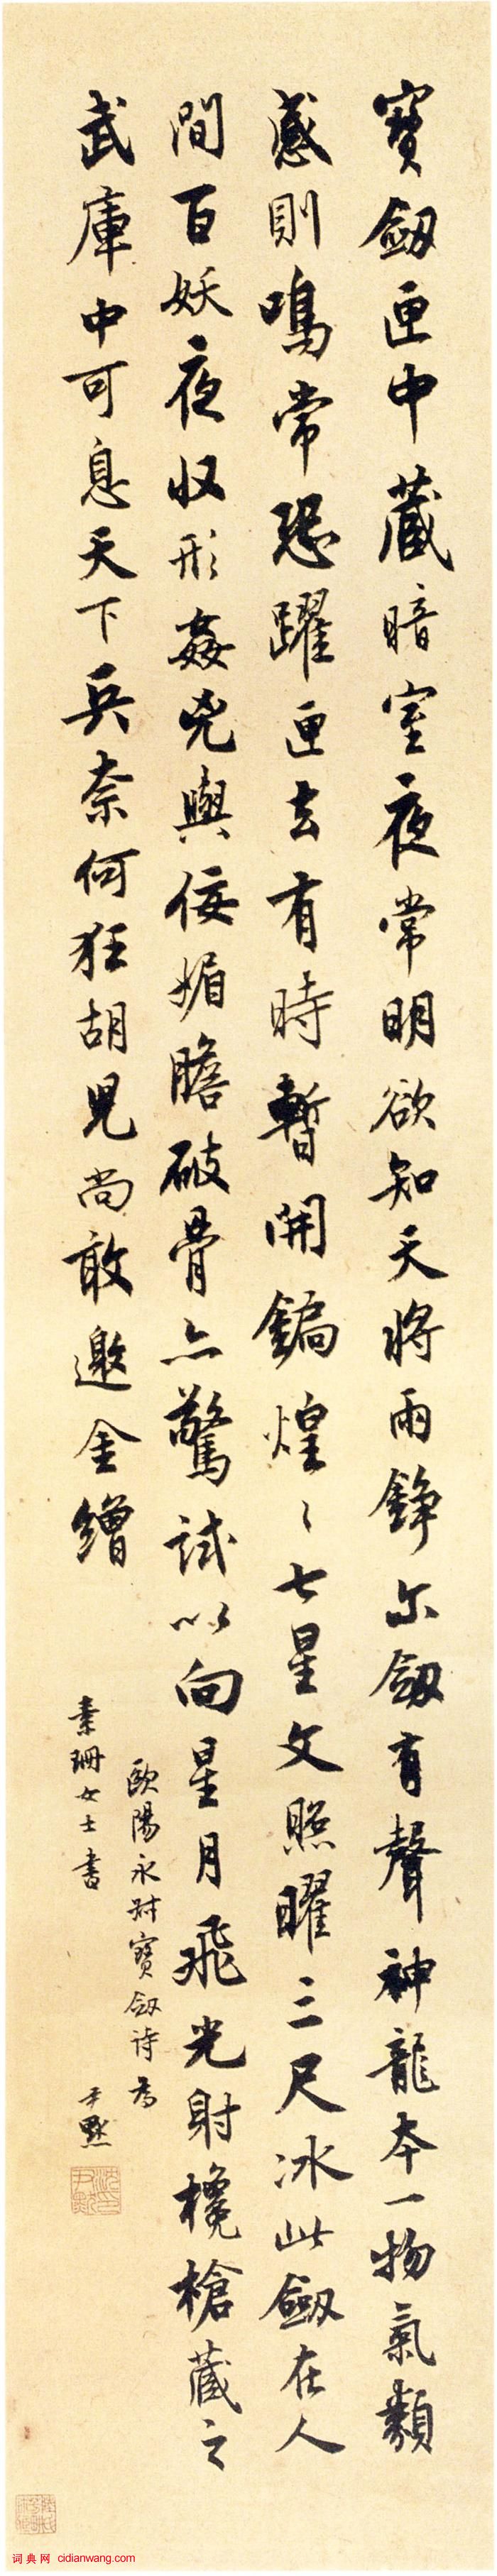 寶劔匣中藏暗室夜常明欲知天將雨錚尔劔有聲神龍本一物氣類
感則鳴常恐躍匣去有時暫開鐍煌〻七星文照曜三尺冰此劔在人
間百妖夜収形姦兇與佞媚膽破骨亦驚試以向星月飛光射欃槍藏之
武庫中可息天下兵奈何狂胡兒尚敢邀金繒
歐陽永叔寶劔詩為
素珊女士書
尹默
沈尹默印
词典网 cidianwang.com